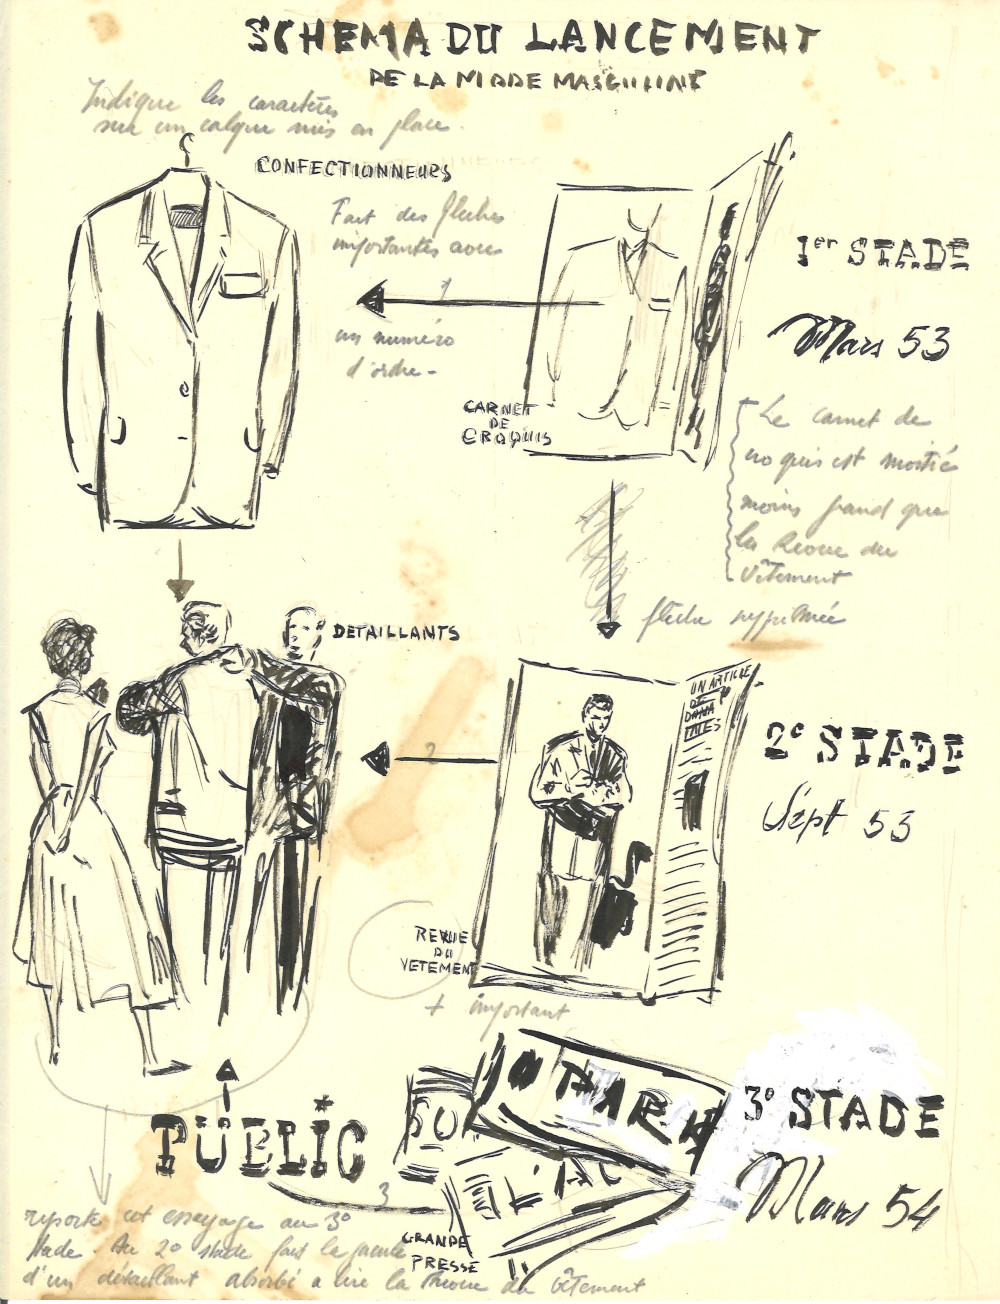 SCHEMA DU LANCEMENT
DE LA MODE MASCULINE
Indique les caractères
sur un calque mis en place.
CONFECTIONNEURS
Fait des flèches
importantes avec
1
un numéro
d'ordre -
1er STADE
Mars 53
CARNET
DE
CROQUIS
Le carnet de
croquis est moitié
moins grand que
la Revue du
Vêtement
flèche supprimée
DETAILLANTS
UN ARTICLE
DE
2
2e STADE
Sept 53
REVUE
DU
VETEMENT
+ important
3e STADE
Mars 54
PUBLIC
3
GRANDE
PRESSE
reporte cet essayage au 3e
stade. Au 2e stade fais la
d'un détaillant absorbé a lire la Revue du Vêtement